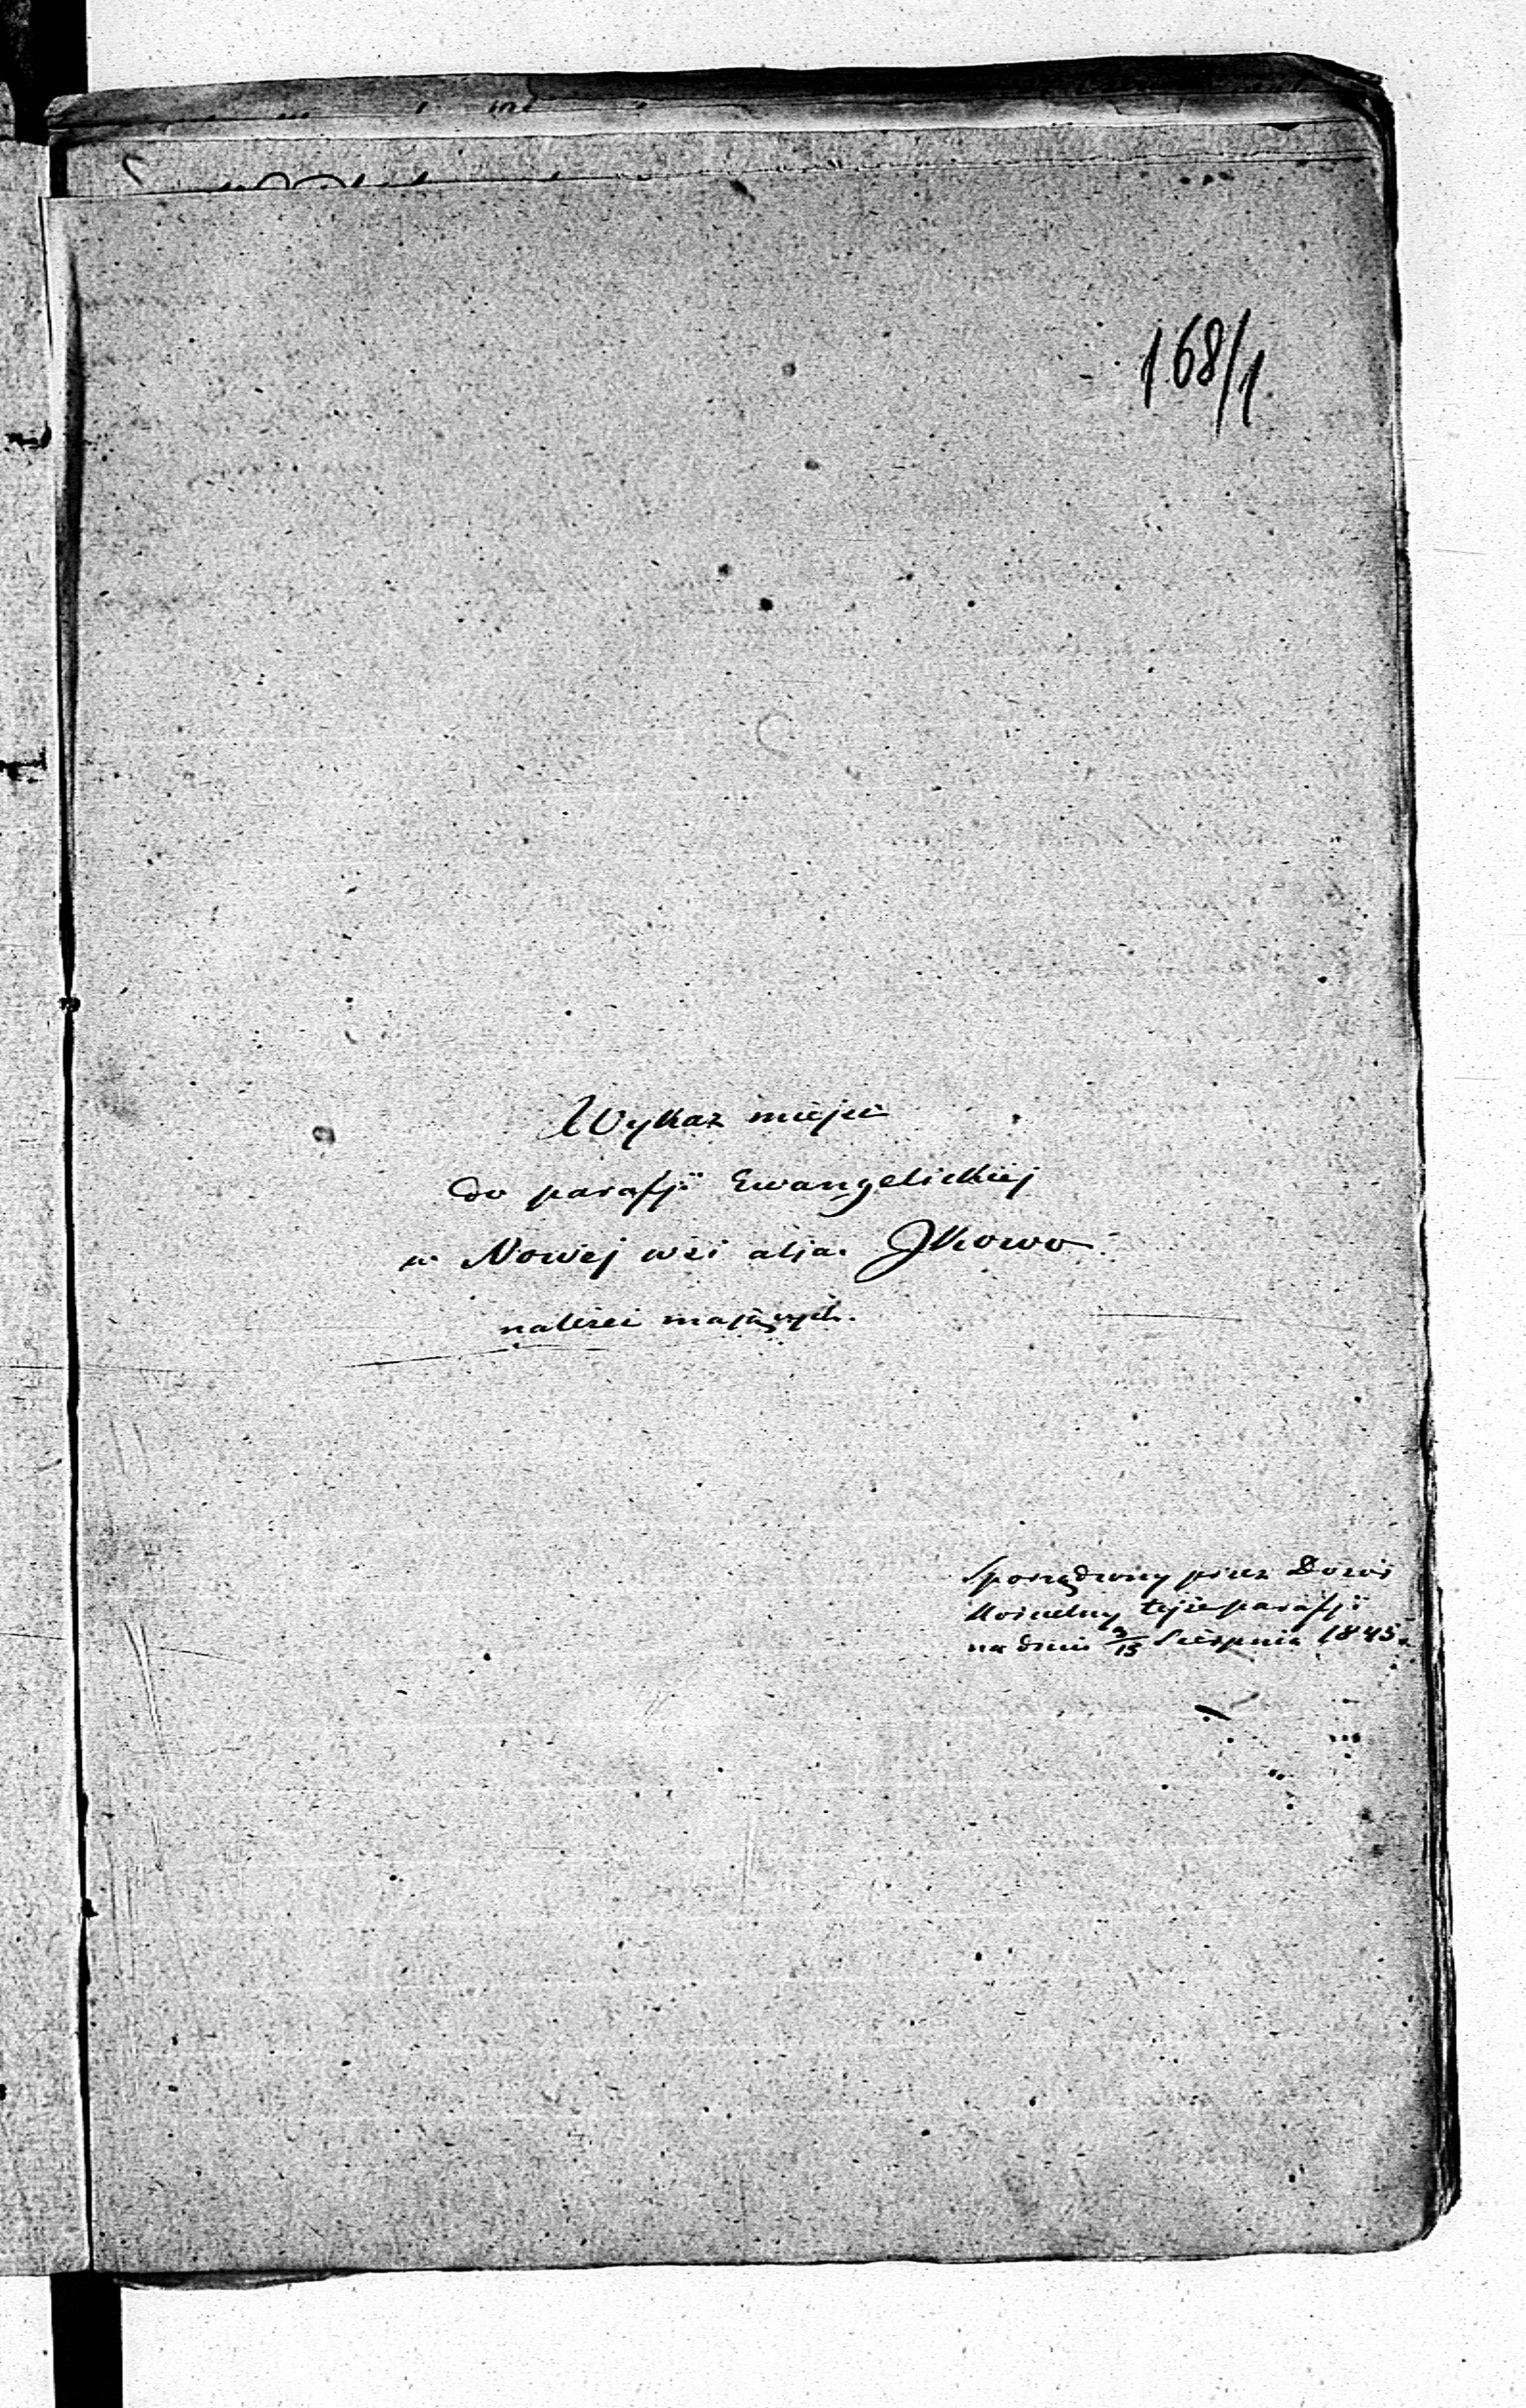 168/1
Wykaz miejsc
do parafji Ewangelickiej
w Nowej wsi alja. Jłowo
należeć mających.
Sporządzony przez Dozór
Kościelny tejże parafji
na dniu 3/15 Sierpnia 1845.